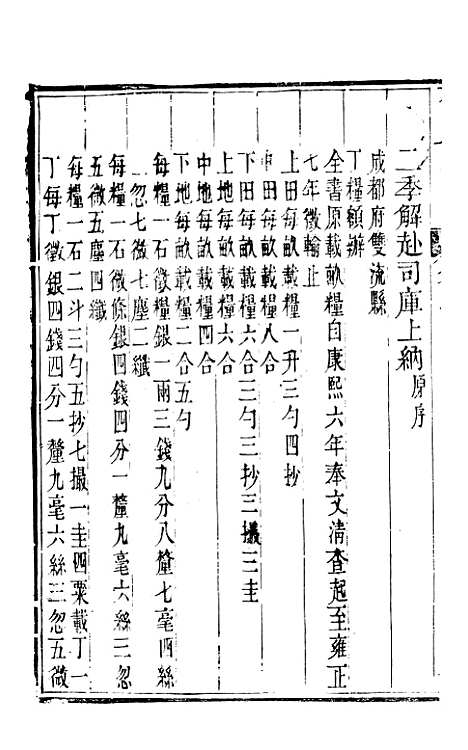 二季解赴司庫上納原序
成都府雙流縣
丁糧額辦
全書原載畝糧自康熙六年奉文清查起至雍正
七年徵輸正
上田每畝載糧一升三勺四抄
中田每畝載糧八合
下田每畝載糧六合三勺三抄三撮三圭
上地每畝載糧六合
中地每畝載糧四合
下地每畝載糧二合五勺
每糧一石徵糧銀一兩三錢九分八釐七毫四絲
二忽七微七塵二纖
每糧一石徵條銀四錢四分一釐九毫六絲三忽
五微五塵四纖
每糧一石二斗三勺五抄七撮一圭四粟載丁一
丁每丁徵銀四錢四分一釐九毫六絲三忽五微